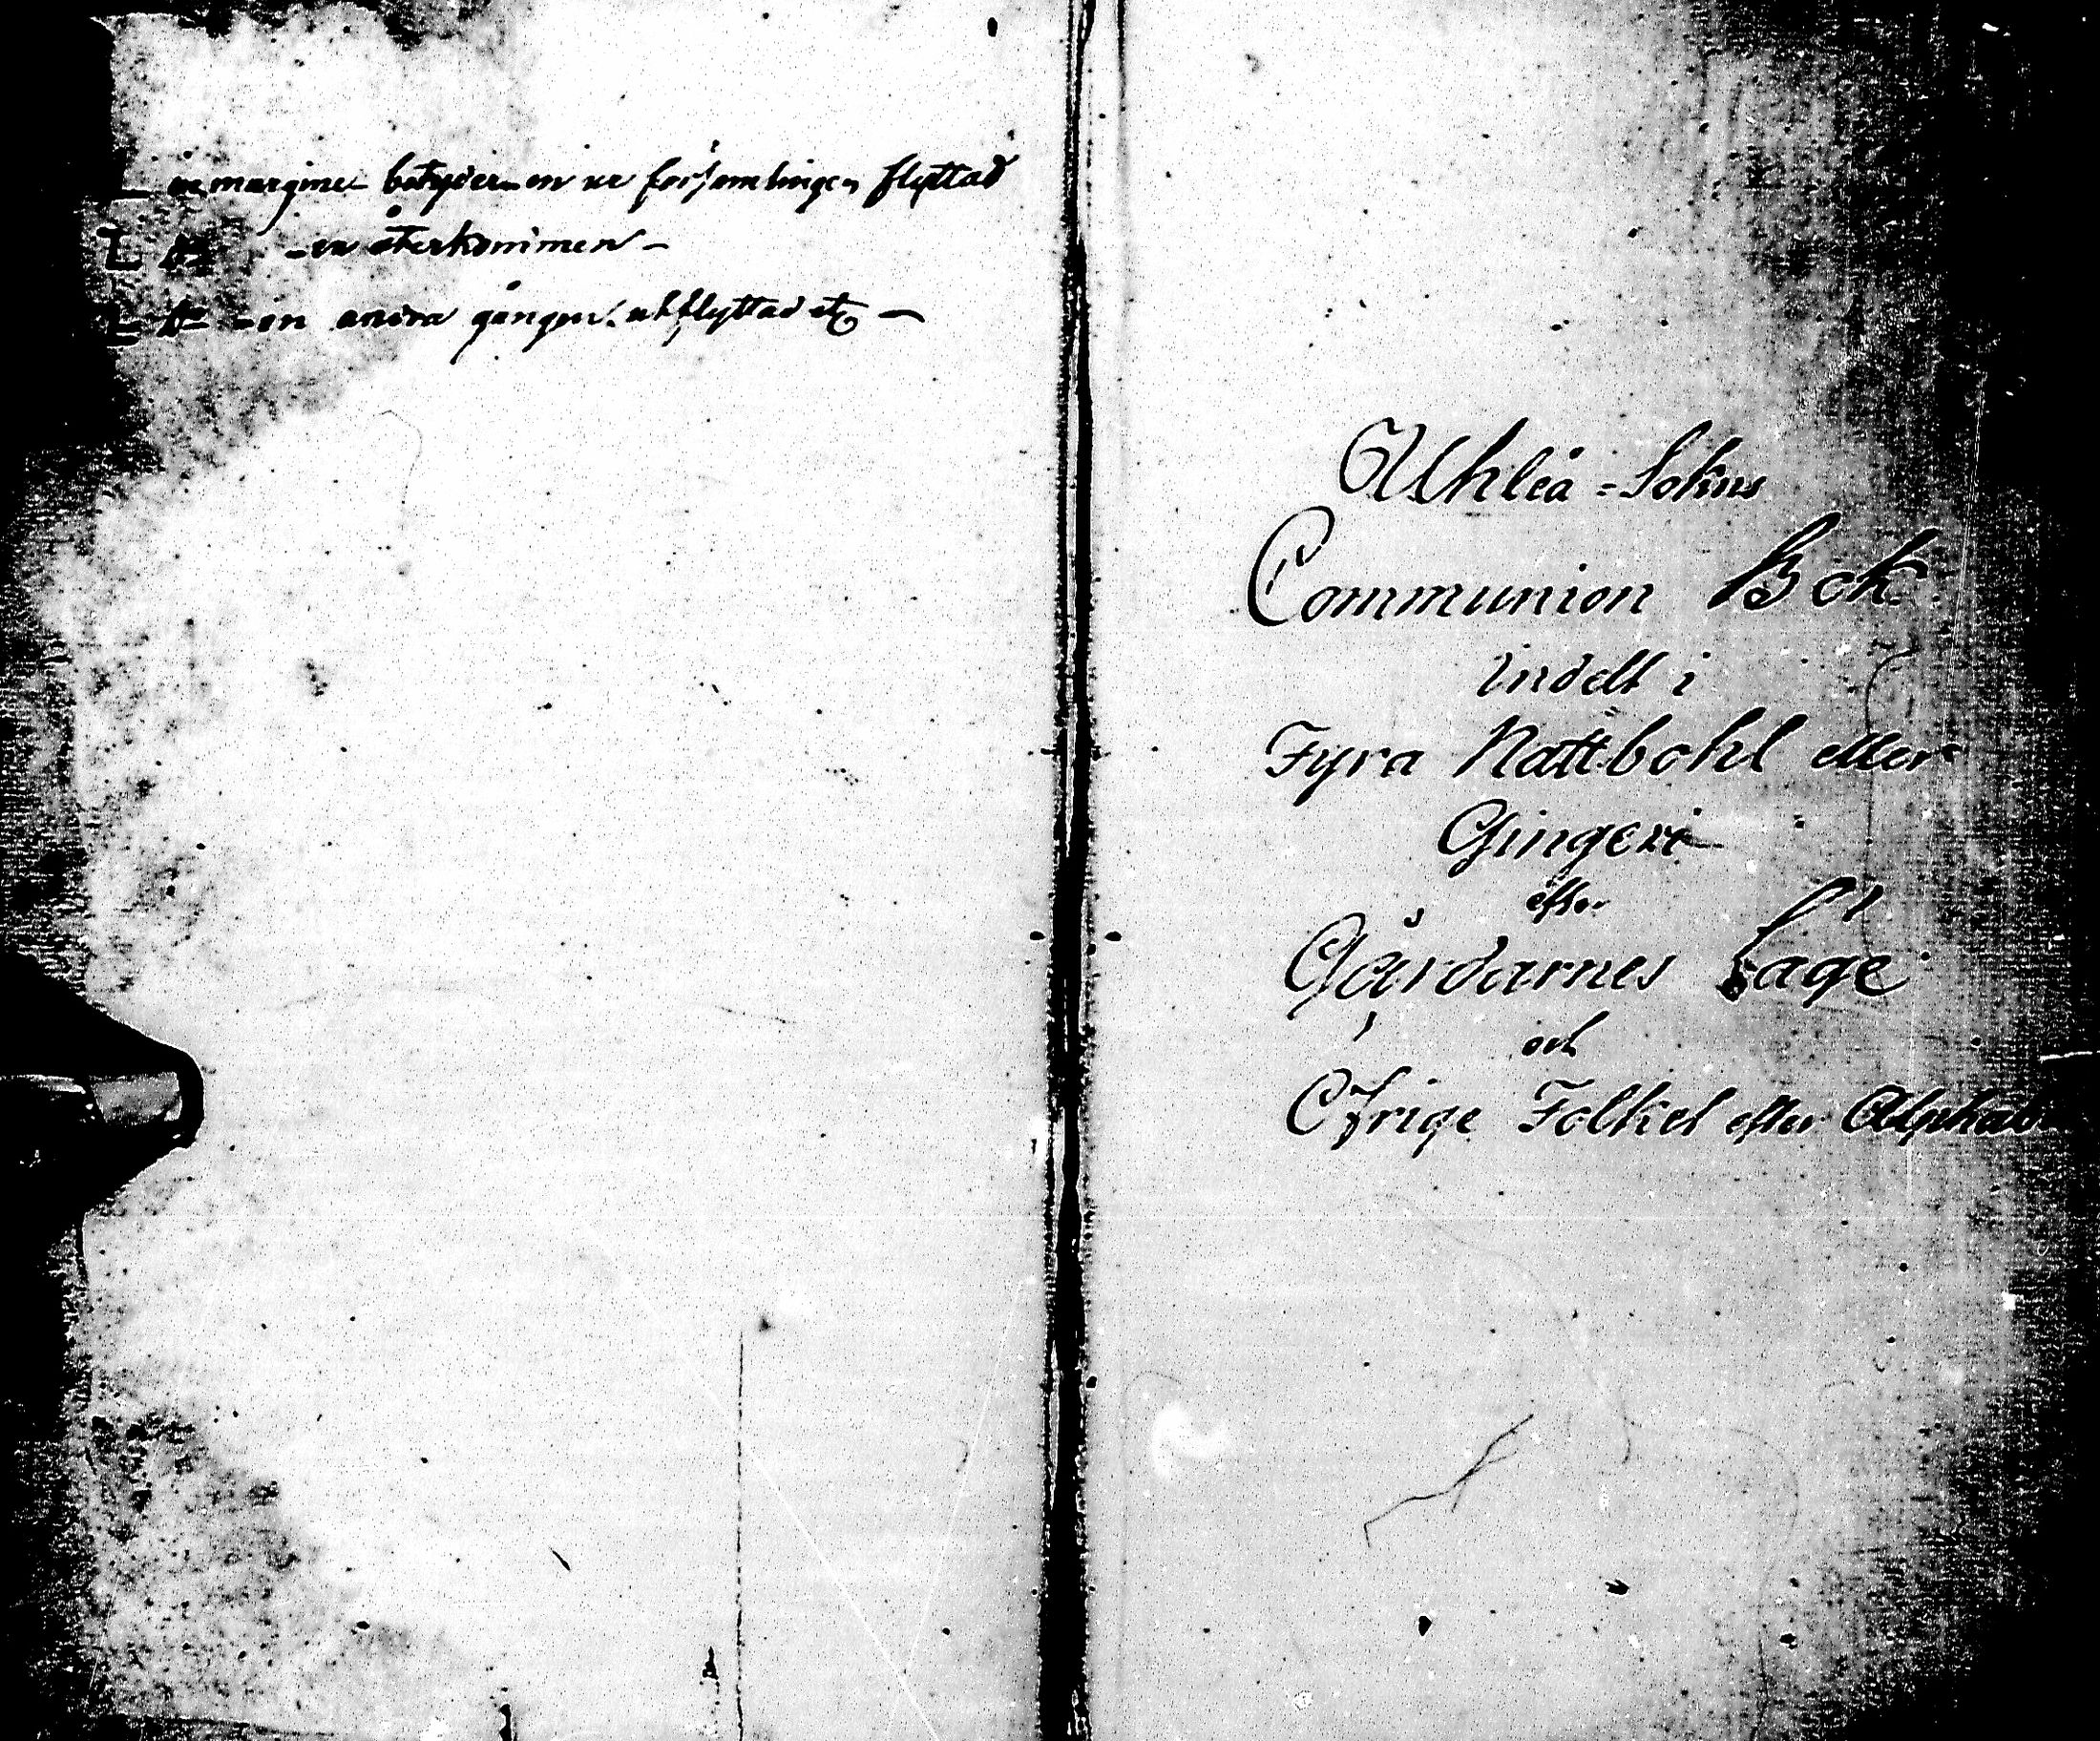 in margine betyder en ur församlingen flyttad
L - en återkommen -
- en andra gången utflyttad etc -
Uhleå = Sokns
Communion Bok
indelt i
Fyra Nattbohl eller
Gingeri
efter
Gårdarnes Läge
och
Öfrige Folket efter Alphab